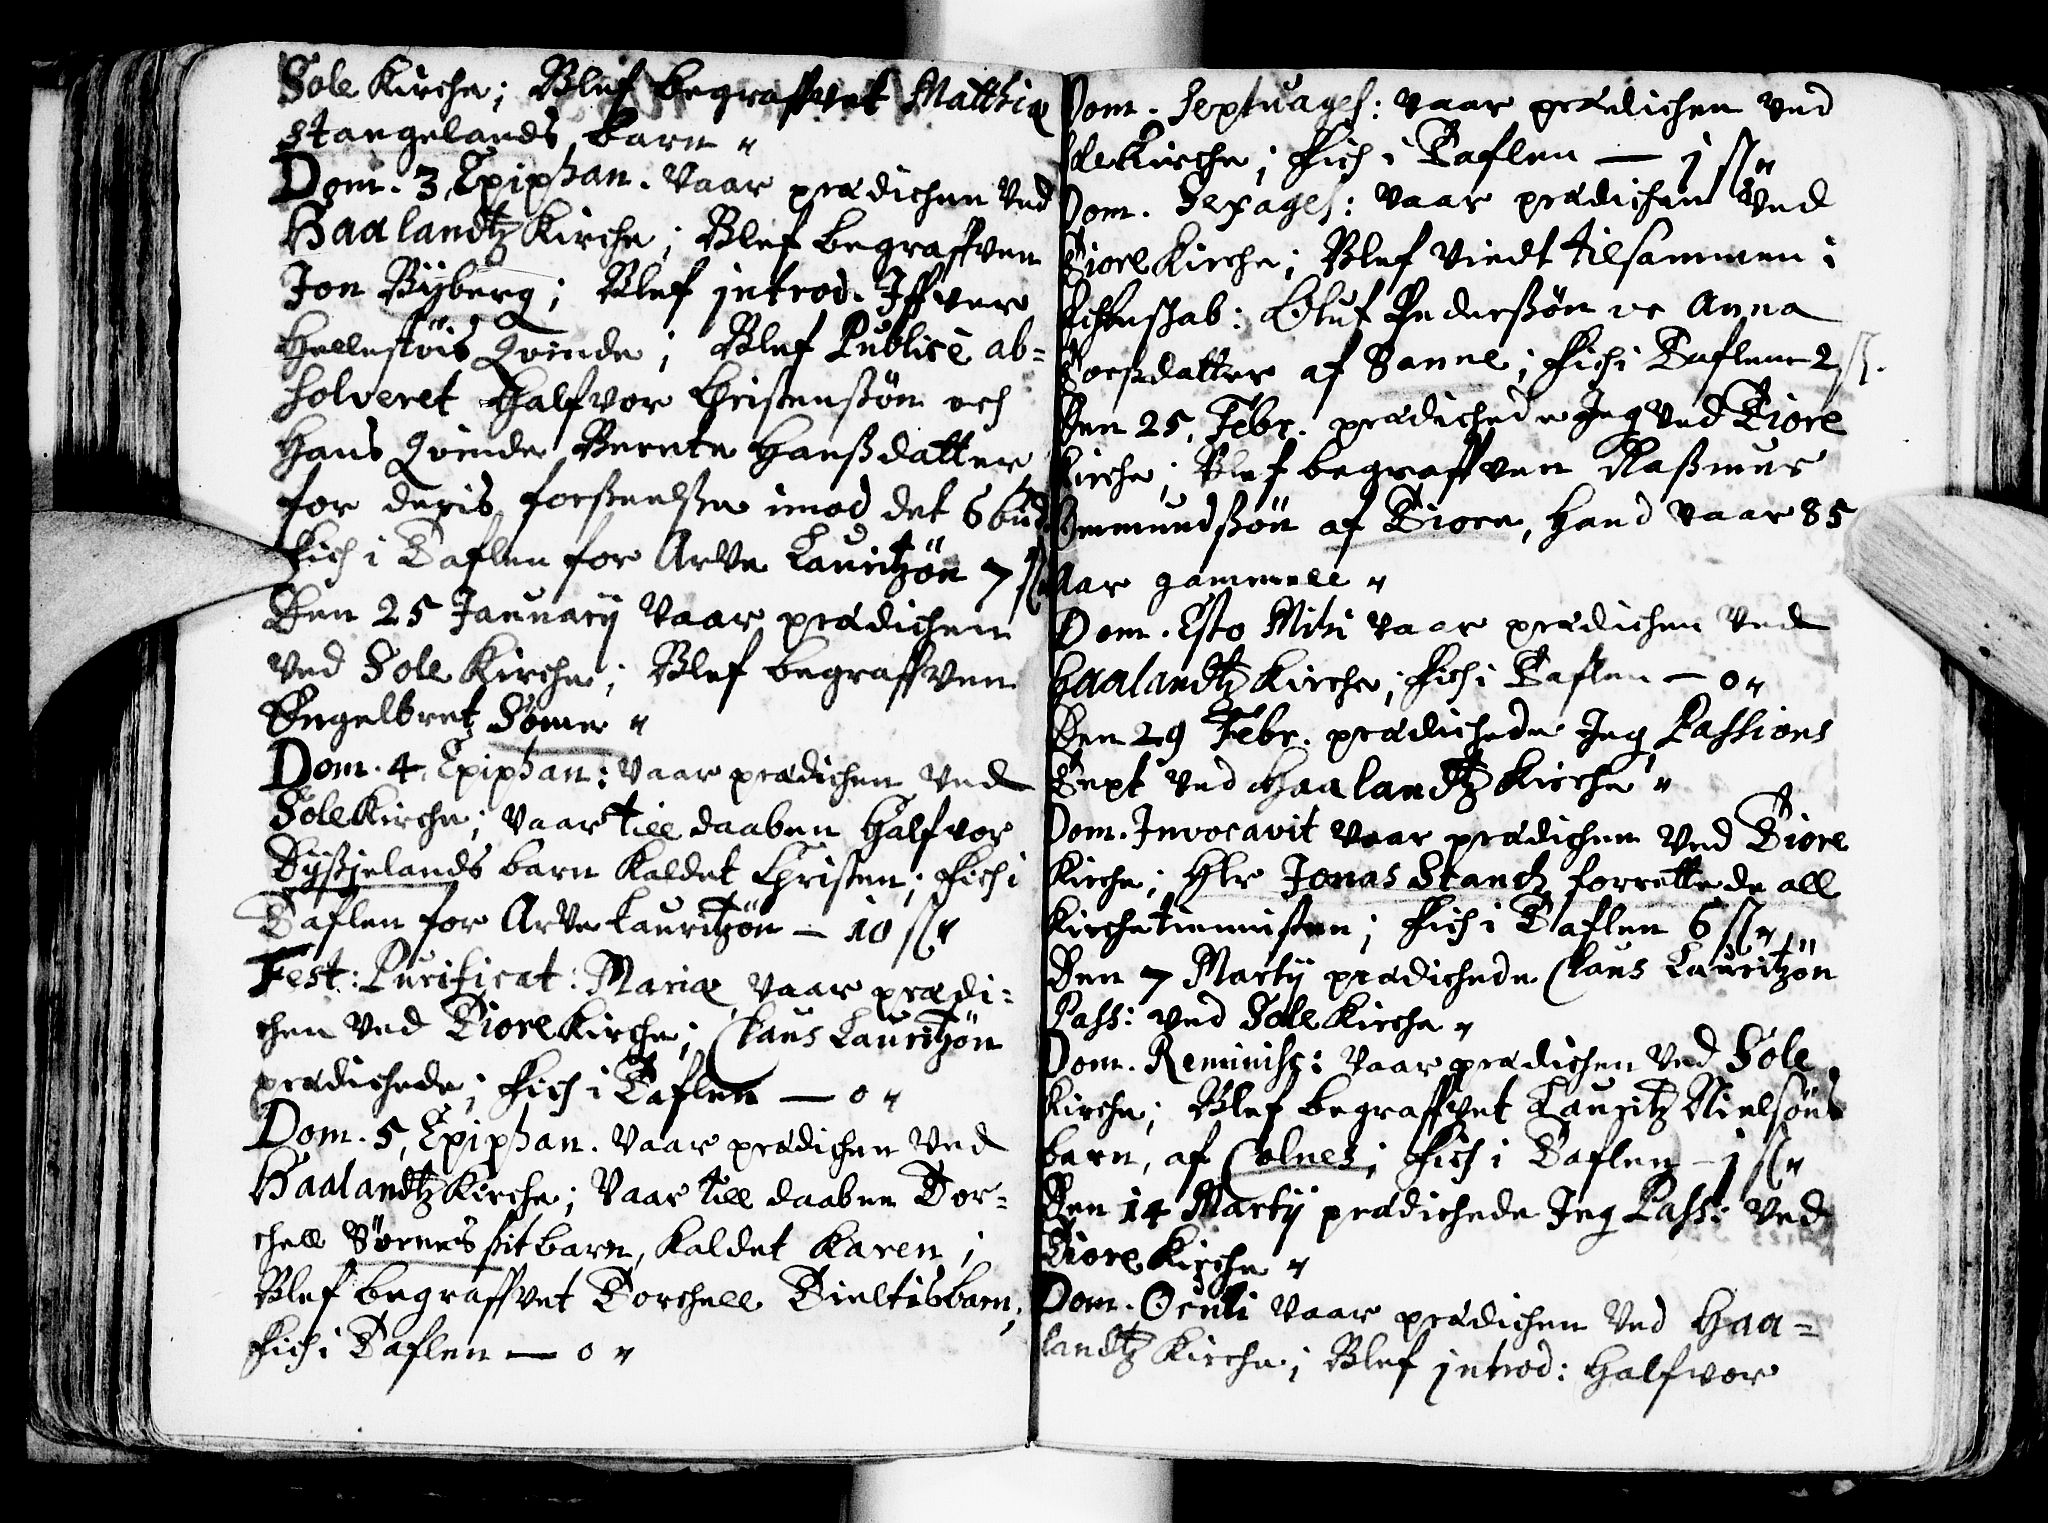 Sole Kirche; Blef begraffvet Matthiæ
Stangelands barn "
Dom. 3 Epiphan. Vaar prædichen Ved
Haalandtz Kirche; Blef begraffven
Jon Ryberg; Blef introd. Iffver
Hellestöis Qvinde; Blef Publicè ab=
solveret Halfvor Christenssön och
Hans Qvinde Berete Hanssdatter
for deris forseelsse imod det 6 bud
Fich i Taflen for Arve Lauritzön 7 ß "
Den 25 January Vaar prædichen
Ved Sole Kirche; Blef begraffven
Engelbret Sömme "
Dom. 4. Epiphan: Vaar prædichen Ved
Sole Kirche; Vaar till daaben Halfvor
Dysjelands barn Kaldet Christen; Fich i
Taflen for Arve Lauritzön — 10 ß "
Fest: Purificat: Mariæ Vaar prædi=
chen Ved Tiore Kirche; Claus Lauritzön
prædichede; Fich i Taflen — 0 "
Dom. 5, Epiphan. Vaar prædichen Ved
Haalandtz Kirche; Vaar till daaben Tor=
chell Sörnes sit barn, Kaldet Karen;
Blef begraffvet Torchell Tieltis barn;
Fich i Taflen — 0 "
Dom. Septuages: Vaar prædichen Ved
Sole Kirche; Fich i Taflen — 1 ß "
Dom. Sexages: Vaar prædichen Ved
Tiore Kirche; Blef Viedt tilsammen i
Echteskab: Oluf Pederssön oc Anna
datter af Sanne; Fich i Taflen 2 ß.
Den 25, Febr. prædichede Jeg Ved Tiore
Kirche; Blef begraffven Rassmus
Ommundssön af Tiore, Hand Vaar 85
Aar gammell "
Dom. Esto Mihi Vaar prædichen Ved
Haalandtz Kirche; Fich i Taflen — 0 "
Den 29 Febr. prædichede Jeg Passions
Text Ved Haalandtz Kirche "
Dom. Invocavit Vaar prædichen Ved Tiore
Kirche; Hr Jonas Stangh forrettede all
Kirchetienesten; Fich i Taflen 6 ß "
Den 7 Martij prædichede Claus Lauritzön
Pass: Ved Sole Kirche "
Dom. Reminisc: Vaar prædichen Ved Sole
Kirche; Blef begraffvet Lauritz Nielsöns
barn, af Colnes; Fich i Taflen — 1 ß "
Den 14 Martij prædichede Jeg Pass: Ved
Tiore Kirche "
Dom. Oculi Vaar prædichen Ved Haa=
landtz Kirche; Blef introd: Halfvor